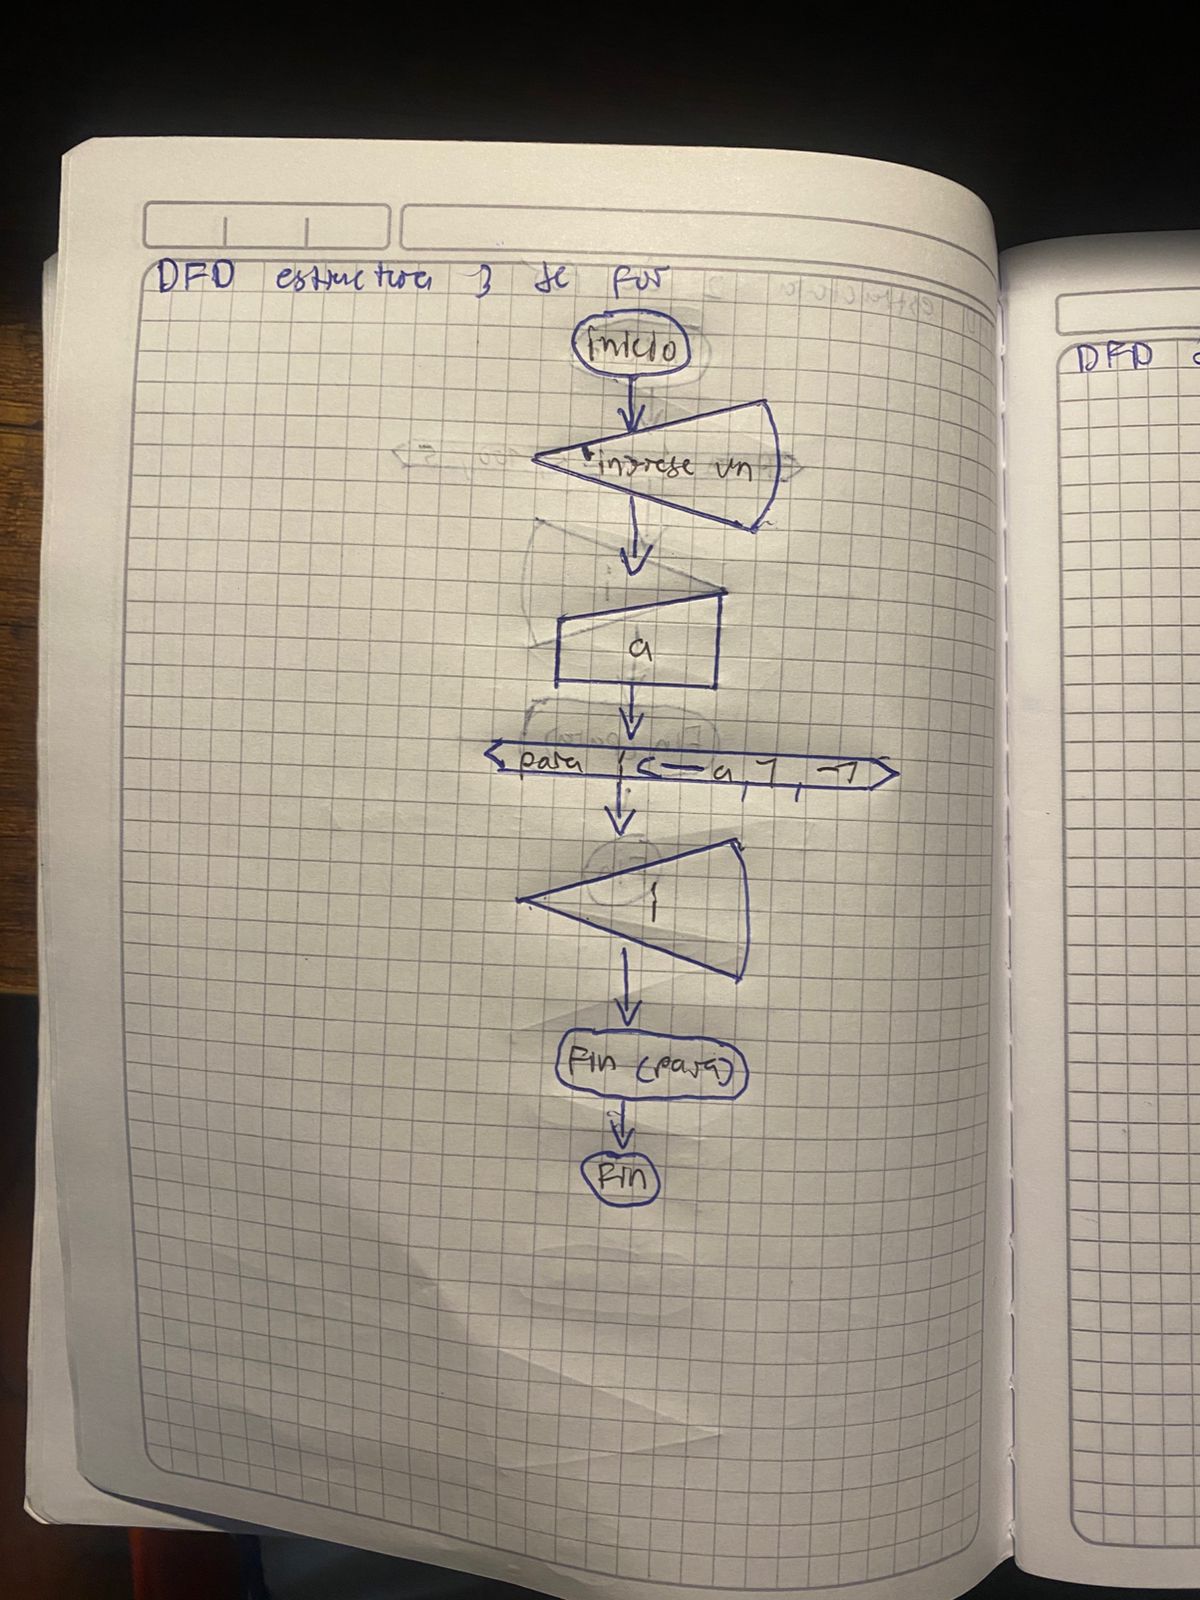 DFD estructura 3 de for
inicio
"ingrese un
a
para i <— a, 1, -1
i
Fin (para)
Fin
DFD